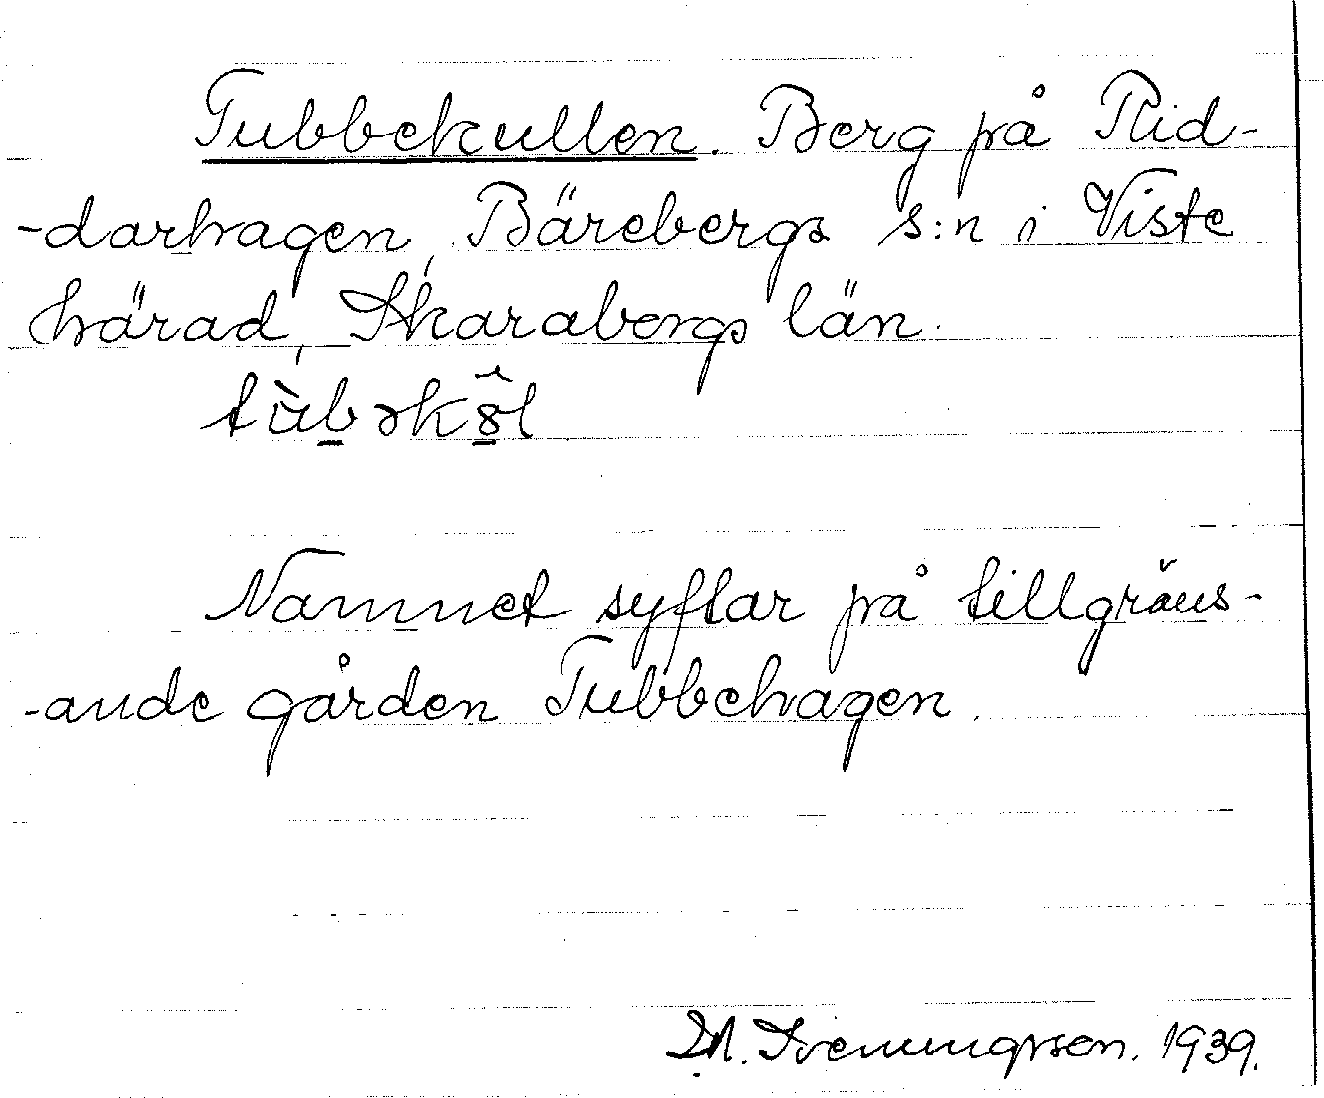 Tubbekullen. Berg på Rid-
-darhagen, Bärebergs s:n i Viste
härad, Skarabergs län.
tùbəkȣ̂l
Namnet syftar på tillgräns-
-ande gården Tubbehagen.
1939.